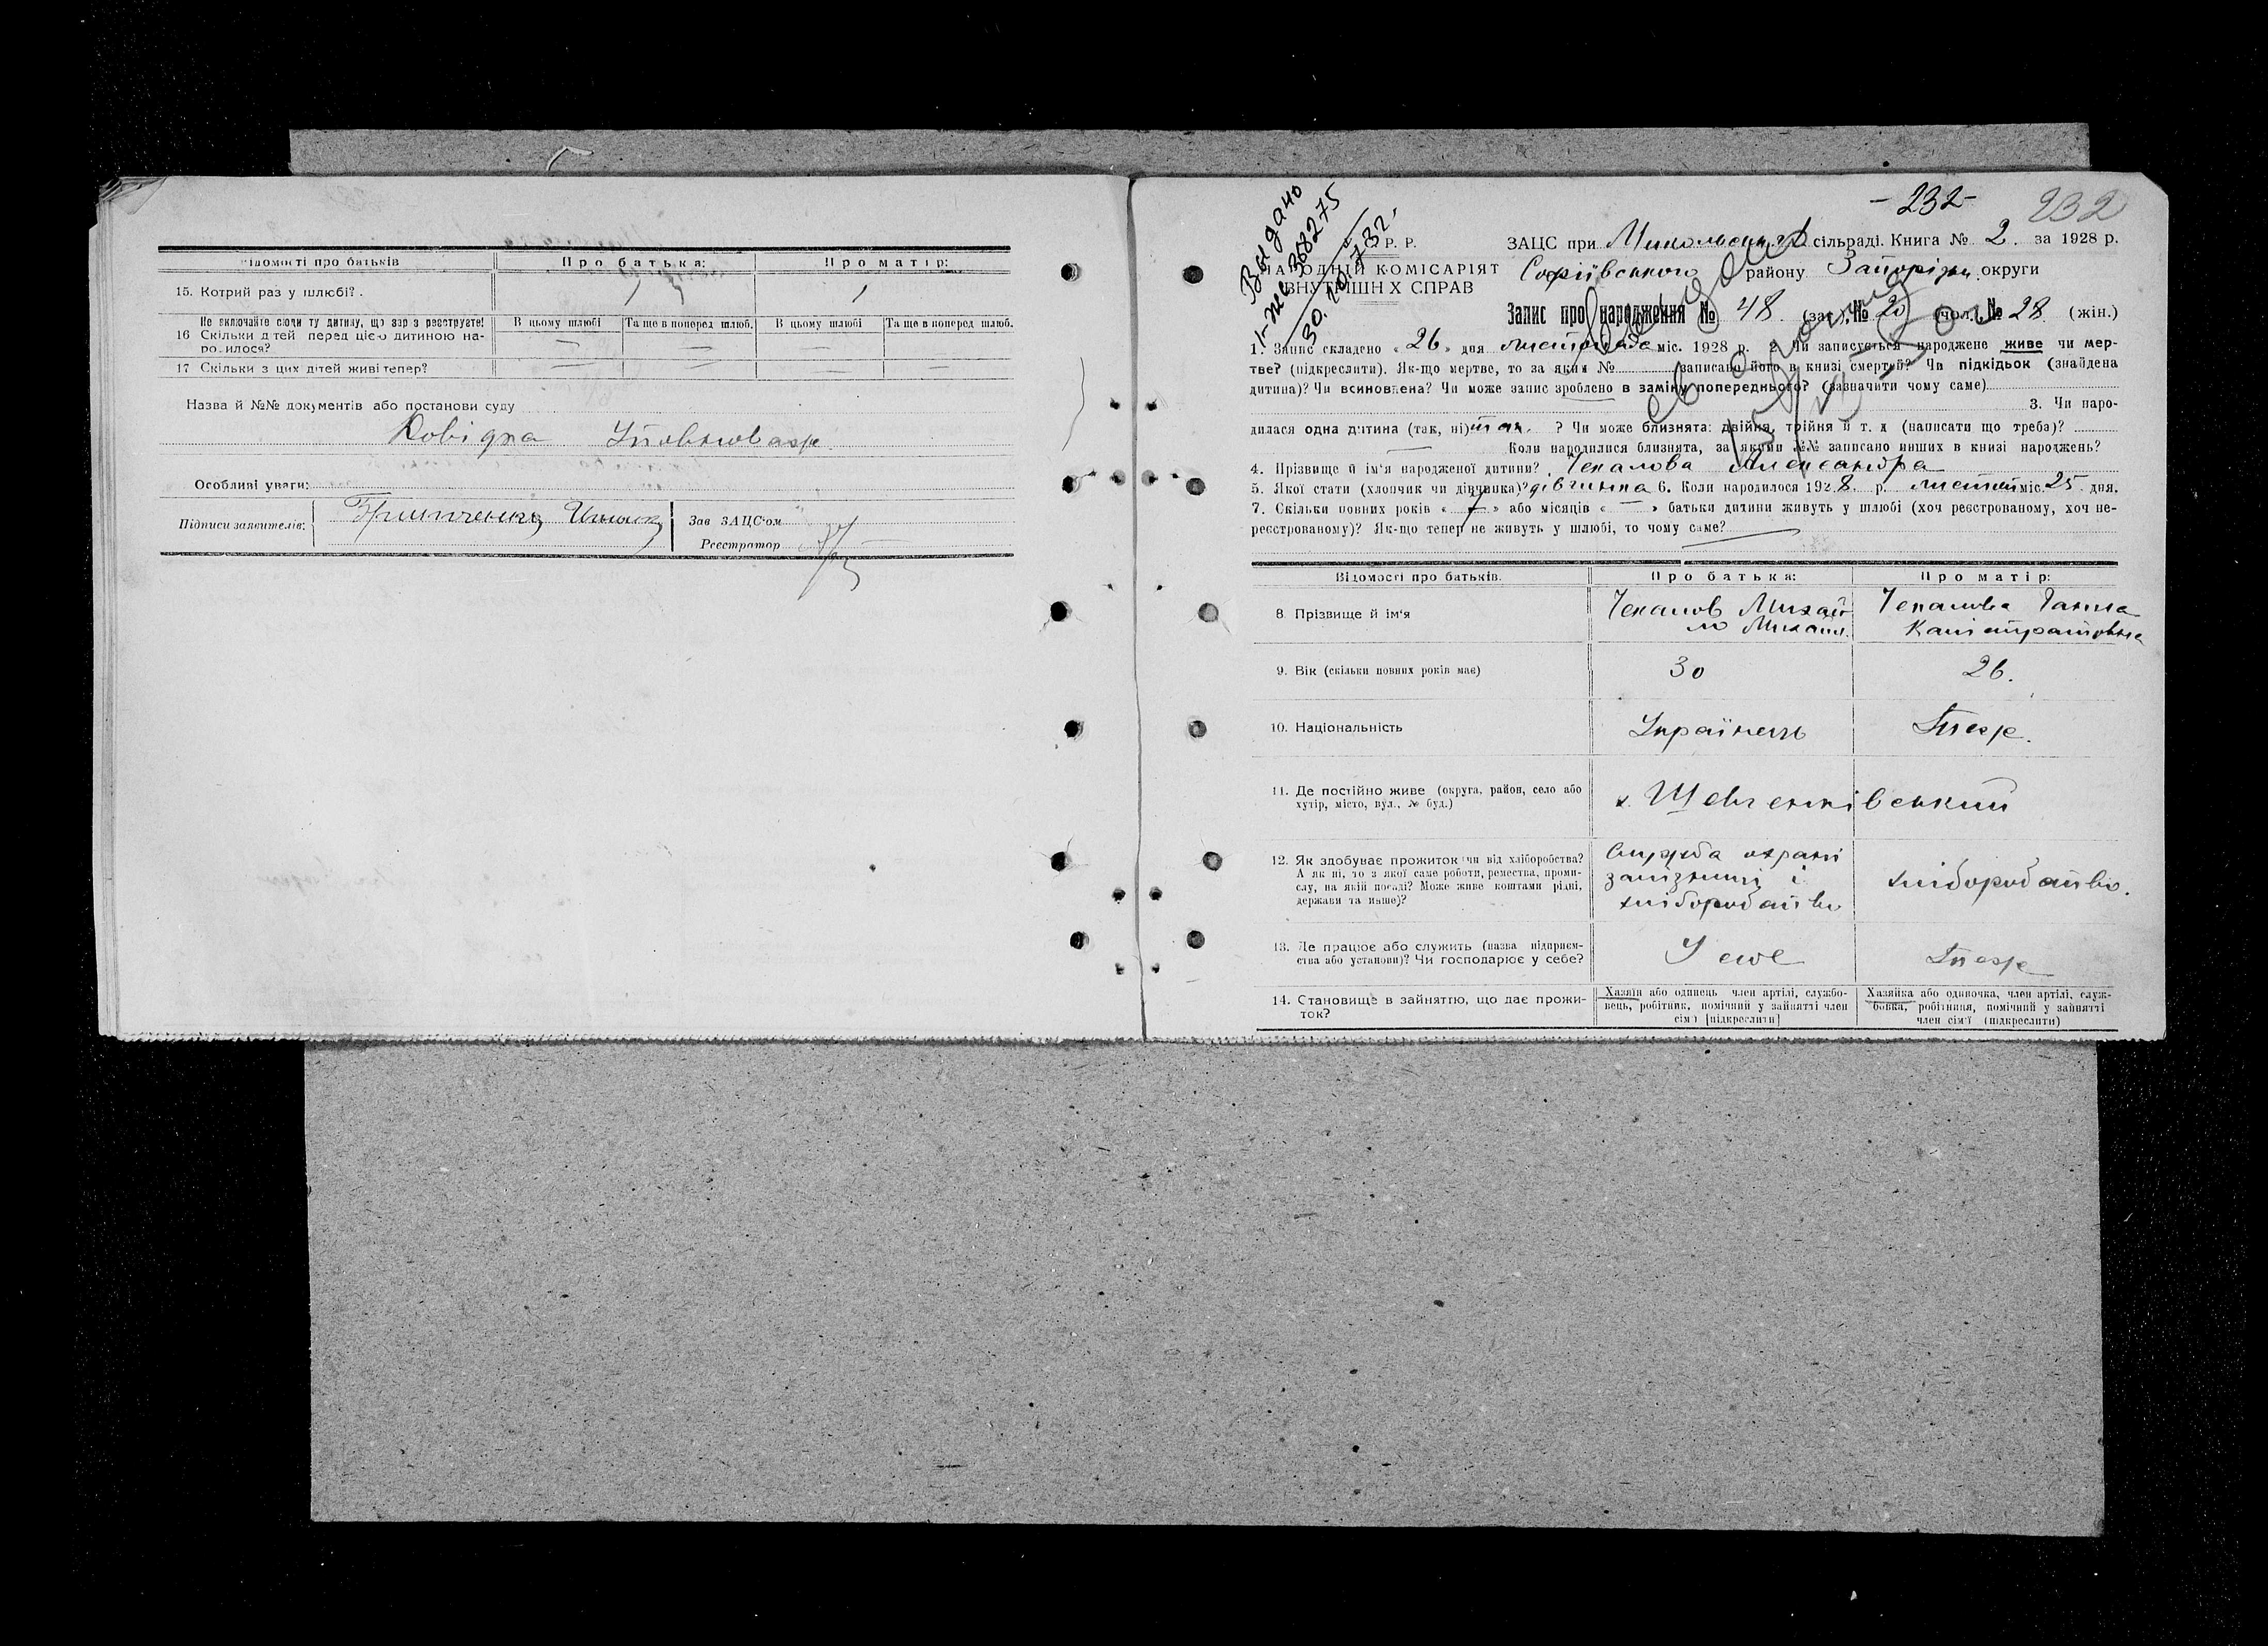 Відомості про батьків
Про батька:
Про матір:
15. Котрий раз у шлюбі?
1
1
Не включайте сюди ту дитину, що зар з реєструєте!
16 Скільки дітей перед цією дитиною на-
родилося?
В цьому шлюбі
Та ще в поперед шлюб.
В цьому шлюбі
Та ще в поперед шлюб.
— — — —
17 Скільки з цих дітей живі тепер?
— — — —
Назва й №№ документів або постанови суду
Довідка
Особливі уваги:
Підписи заявителів:
Зав ЗАЦС'ом
Реєстратор
-232- 232
Выдано
368275
30.
Р. Р.
НАРОДНІЙ КОМІСАРІЯТ
ВНУТРІШНІХ СПРАВ
ЗАЦС при сільраді. Книга № 2. за 1928 р.
Софіївського району Запорізьк. округи
Запис про народження № 48. (заг.), № 20 (чол.), № 28 (жін.)
1. Запис складено « 26 » дня листопада міс. 1928 р. 2. Чи записується народжене живе чи мер-
тве? (підкреслити). Як-що мертве, то за яким № записано його в книзі смертей? Чи підкідьок (знайдена
дитина)? Чи всиновлена? Чи може запис зроблено в заміну попереднього? (зазначити чому саме)
3. Чи наро-
дилася одна дитина (так, ні) так. ? Чи може близнята: двійня, трійня й т. д (написати що треба)?
— Коли народилися близнята, за якими №№ записано инших в книзі народжень?
4. Прізвище й ім'я народженої дитини? Чепалова Александра
5. Якої стати (хлопчик чи дівчинка)? дівчинка 6. Коли народилося 1928 р. листопад міс. 25 дня.
7. Скільки повних років « 7 » або місяців « — » батьки дитини живуть у шлюбі (хоч реєстрованому, хоч не-
реєстрованому)? Як-що тепер не живуть у шлюбі, то чому саме? —
Відомості про батьків.
Про батька:
Про матір:
8. Прізвище й ім'я
Чепалов Михай
ло Михайл.
Чепалова Ганна
Калістратовна
9. Вік (скільки повних років має)
30
26.
10. Національність
Українець
Теж.
11. Де постійно живе (округа, район, село або
хутір, місто, вул., № буд.)
х. Шевченківський
12. Як здобуває прожиток чи від хліборобства?
А як ні, то з якої саме роботи, ремества, проми-
слу, на якій посаді? Може живе коштами рідні,
держави та инше)?
Служба охрані
залізниці і
хліборобство
хліборобство.
13. Де працює або служить (назва підприєм-
ства або установи)? Чи господарює у себе?
У себе
Теж
14. Становище в зайняттю, що дає прожи-
ток?
Хазяїн або одинець член артілі, службо-
вець, робітник, помічний у зайнятті член
сім'ї [підкреслити]
Хазяйка або одиночка, член артілі, служ-
бовка, робітниця, помічний у зайнятті
член сім'ї (підкреслити)